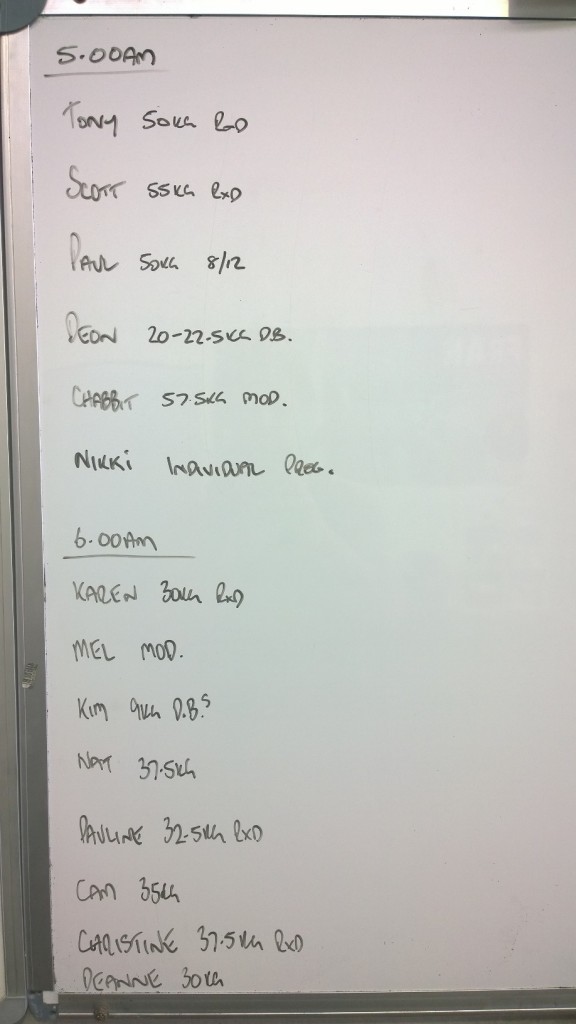 5.00AM
TONY 50KG RXD
SCOTT 55KG RXD
PAUL 50KG 8/12
DEON 20-22.5KG D.B.
CHABBIT 57.5KG MOD.
NIKKI INDIVIDUAL PROG.
6.00AM
KAREN 30KG RXD
MEL MOD.
KIM 9KG D.B.S
NAT 37.5KG
PAULINE 32.5KG RXD
CAM 35KG
CHRISTINE 37.5KG RXD
DEANNE 30KG